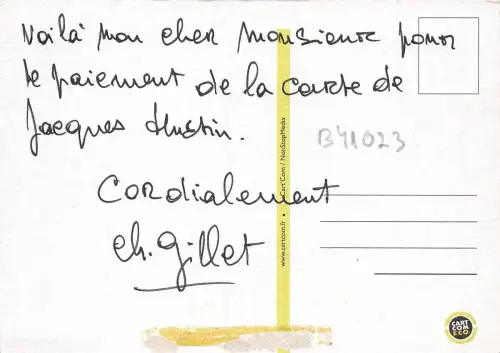 Voilà mon cher Monsieur pour
le paiement de la carte de
Jacques Hustin.
B41023
Cordialement
ch. Gillet
www.cartcom.fr • Cart'Com / NonStopMedia
CART
COM
ECO